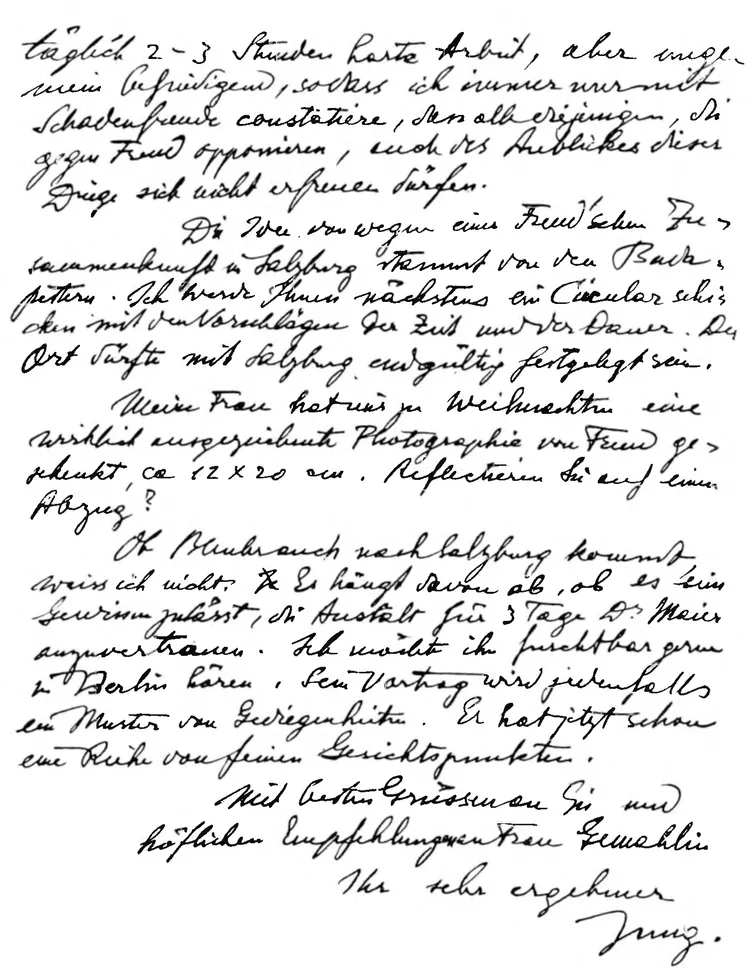 täglich 2-3 Stunden harte Arbeit, aber unge-
mein befriedigend, sodass ich immer nur mit
Schadenfreude constatiere, dass alle diejenigen, die
gegen Freud opponieren, auch des Anblickes dieser
Dinge sich nicht erfreuen dürfen.
Die Idee von wegen einer Freud'schen Zu-
sammenkunft in Salzburg stammt von den Buda-
pestern. Ich werde Ihnen nächstens ein Circular schi-
cken mit den Vorschlägen der Zeit und der Dauer. Der
Ort dürfte mit Salzburg endgültig festgelegt sein.
Meine Frau hat mir zu Weihnachten eine
wirklich ausgezeichnete Photographie von Freud ge-
schenkt, ca 12 x 20 cm. Reflectieren Sie auf einen
Abzug?
Ob Bleuler auch nach Salzburg kommt,
weiss ich nicht. Es hängt davon ab, ob es sein
Gewissen zulässt, die Anstalt für 3 Tage Dr Maier
anzuvertrauen. Ich möchte ihn furchtbar gerne
in Berlin hören. Sein Vortrag wird jedenfalls
ein Muster von Gediegenheiten. Er hat jetzt schon
eine Reihe von feinen Gesichtspunkten.
Mit besten Grüssen an Sie und
höflichen Empfehlungen an Frau Gemahlin
Ihr sehr ergebener
Jung.